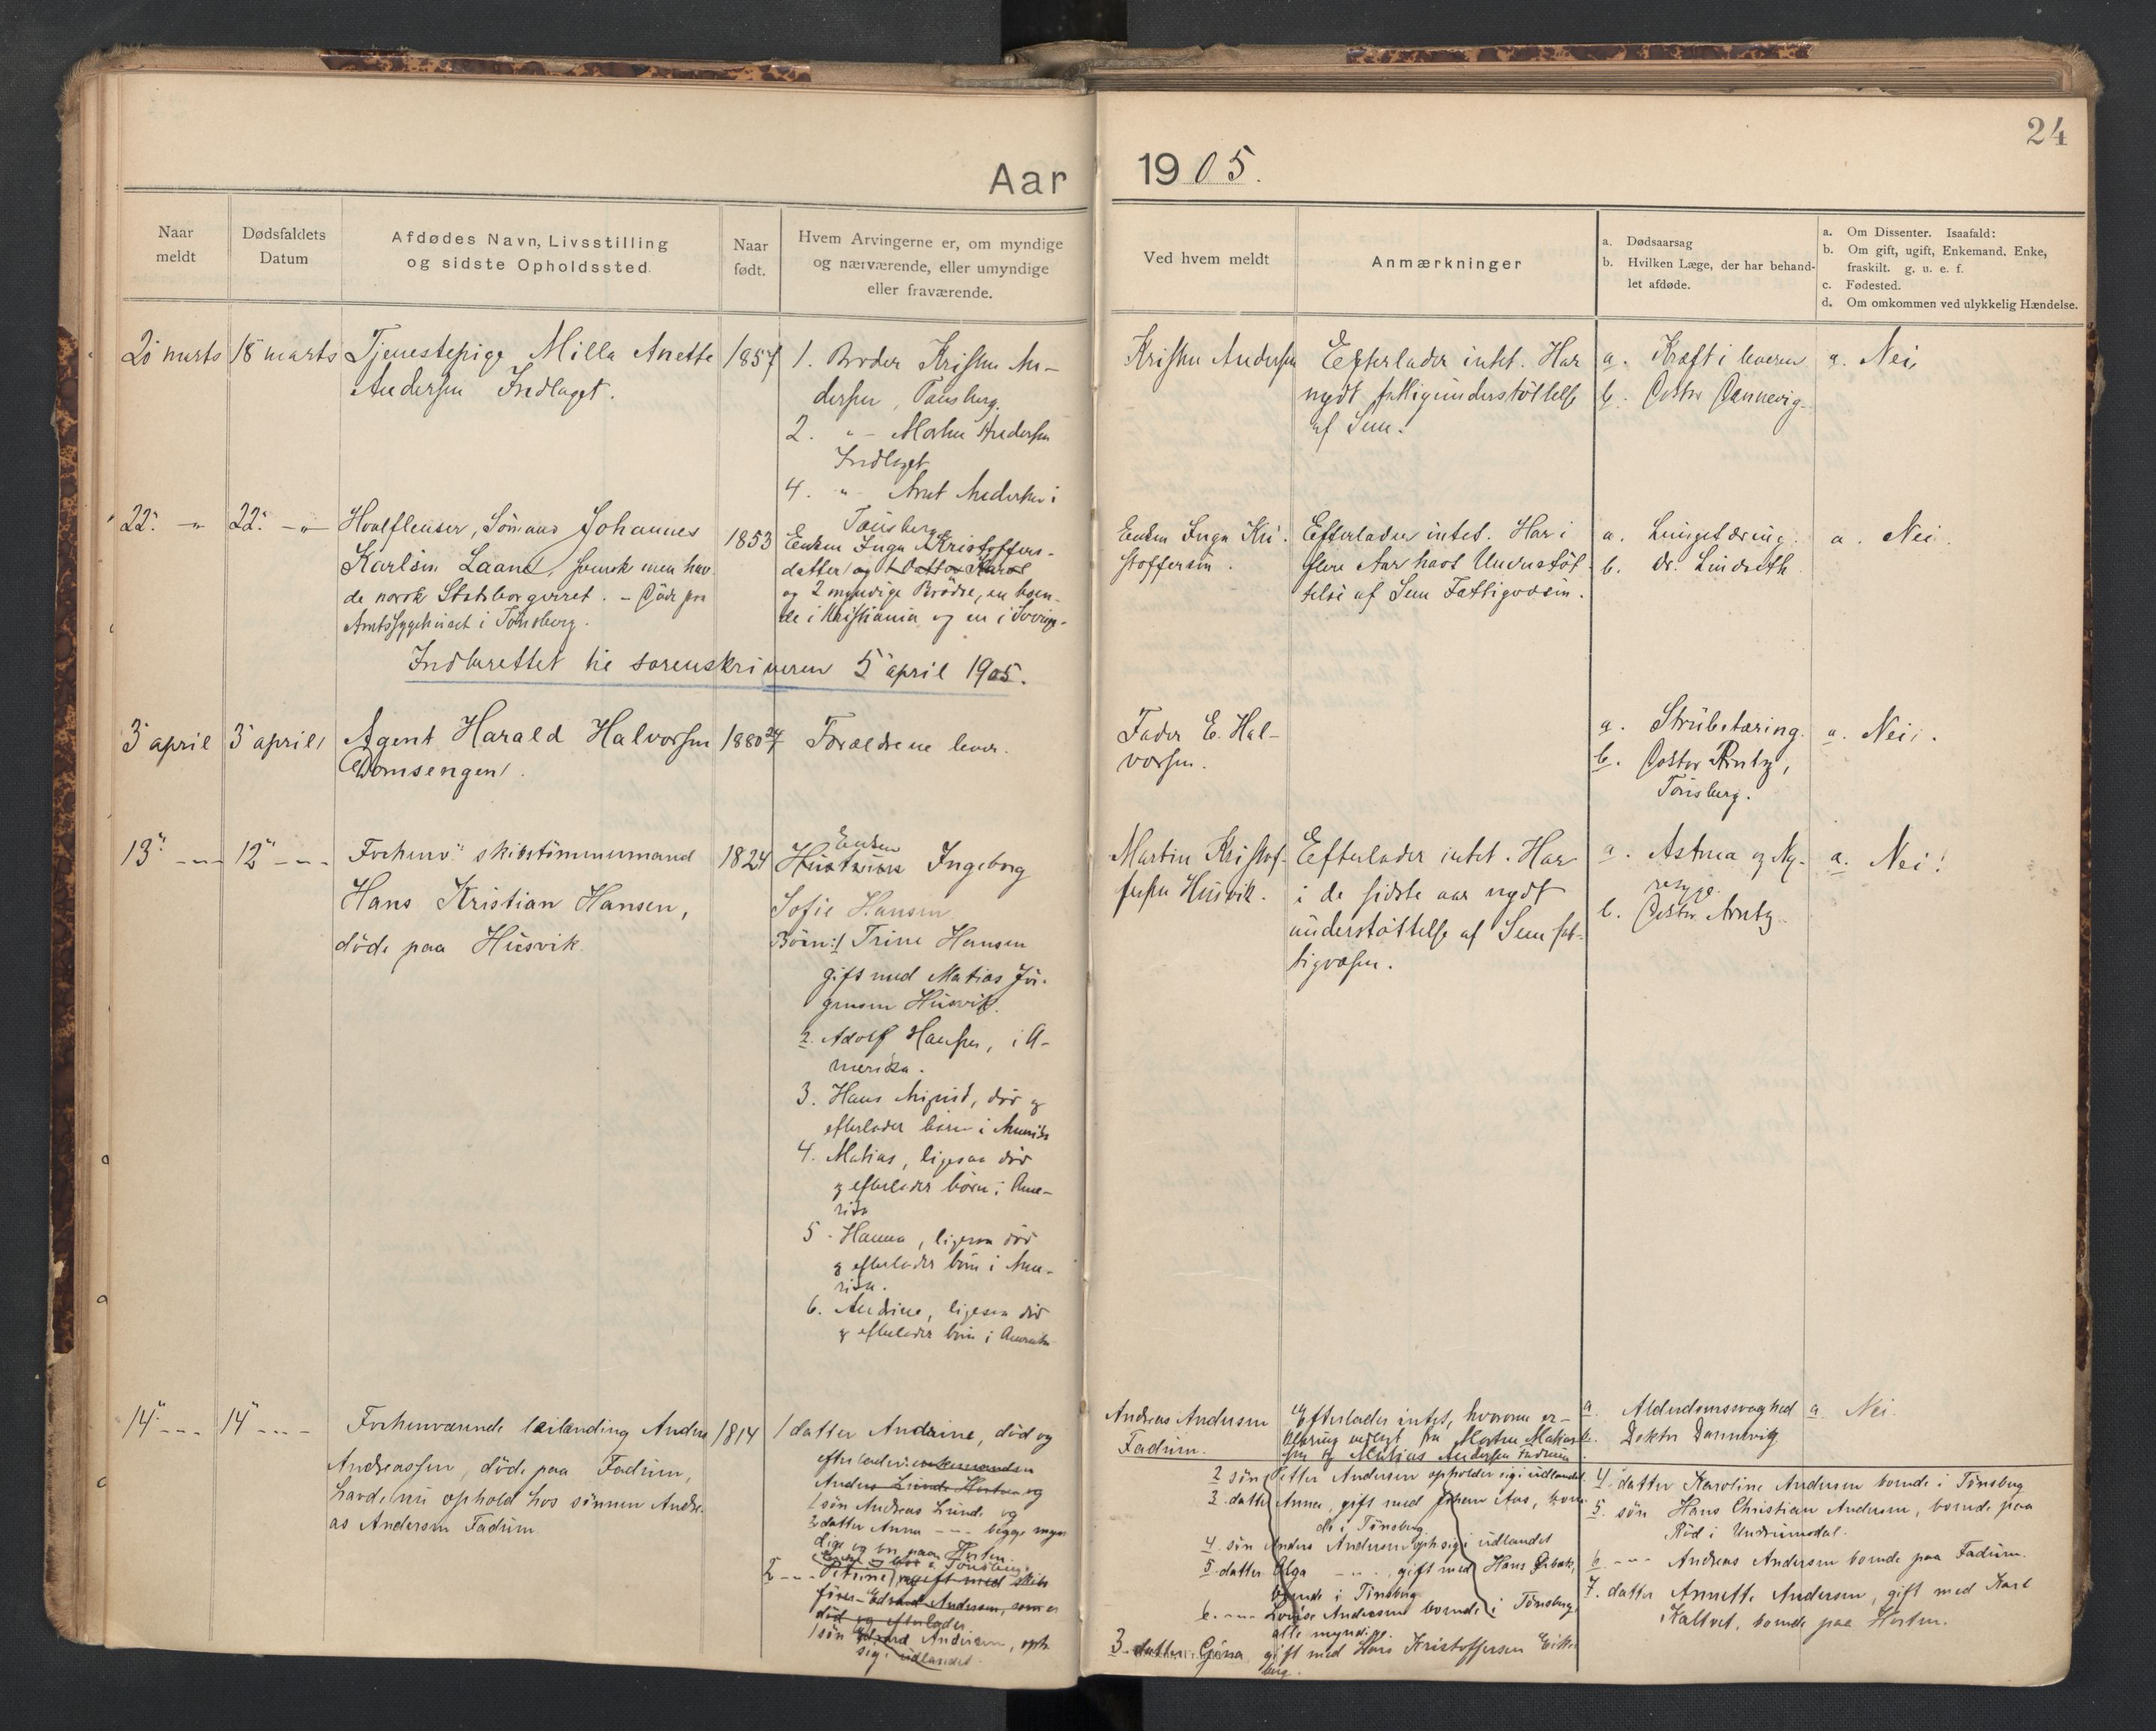 24
Aar 1905.
Naar
meldt
Dødsfaldets
Datum
Afdødes Navn, Livsstilling
og sidste Opholdssted.
Naar
født.
Hvem Arvingerne er, om myndige
og nærværende, eller umyndige
eller fraværende.
Ved hvem meldt
Anmærkninger
a. Dødsaarsag
b. Hvilken Læge, der har behand-
let afdøde.
a. Om Dissenter. Isaafald:
b. Om gift, ugift, Enkemand, Enke,
fraskilt. g. u. e. f.
c. Fødested.
d. Om omkommen ved ulykkelig Hændelse.
20 marts
18 marts
Tjenestepige Milla Anette
Andersen Indlaget.
1857
1. Broder Kristen An-
dersen, Tønsberg.
2. " - Morten Andersen
Indlaget
4. " - Anet Andersen i
Tønsberg
Kristen Andersen
Efterlader intet. Har
nydt fattigunderstöttelse
af Sem.
a. Kræft i leveren
b. Doktor Dannevig
a. Nei
22. - " -
22. - " -
Hvalflenser, Sömand Johannes
Karlsen Laane, svensk men hav-
de norsk Statsborgerret. - Döde paa
Amtssygehuset i Tönsberg.
1853
Enken Inga Kristoffers-
datter og 1 Datter
og 2 myndige Brödre, en boen-
de i Kristiania og en i Sverige.
Enken Inga Kri-
stoffersen.
Efterlader intet. Har i
flere Aar havt Understöt-
telse af Sem Fattigvæsen.
a. Lungetæring.
b. Dr. Lindseth
a. Nei.
Indberettet til sorenskriveren 5 april 1905.
3 april
3 april
Agent Harald Halvorsen
1880
Forældrene lever.
Fader E. Hal-
vorsen.
a. Strubetæring.
b. Doktor Arntz,
Tönsberg.
a. Nei.
13" - - -
12" - - -
Forhenv. skibstömmermand
Hans Kristian Hansen,
döde paa Húsvik.
1824
Enken
Hustruen Ingeborg
Sofie Hansen
Börn: 1 Trine Hansen
gift med Matias Jör-
gensen Húsvik.
2. Adolf Hansen, i A-
merika.
3. Hans, död og
efterlader börn i Amerika
4. Matias, ligesaa död
og efterlader börn i Ame-
rika
5. Hanna, ligesaa död
og efterlader börn i Ame-
rika.
6. Andrine, ligesaa död
og efterlader börn i Amerika
Martin Kristof-
fersen Húsvik.
Efterlader intet. Har
i de sidste aar nydt
understöttelse af Sem fat-
tigvæsen.
a. Astma og Ny-
resyge.
b. Doktor Arntz
a. Nei.
14" - - -
14" - - -
Forhenværende leilænding Anders
Andreassen, döde paa Fadum,
havde nu ophold hos sönnen Andre-
as Andersen Fadum
1814
1 datter Andrine, död og
efterlader: enkemanden
Anders Lunde Horten og
1 sön Andreas Lunde og
2 datter Anna - - - begge myn-
dige og bor paa Horten.
2 - - - Petrine, gift med skibs-
förer Edvard Andersen, som er
död og efterlader
1 sön Edvard Andersen, oph.
sig i udlandet.
Andreas Andersen
Fadum.
Efterlader intet, hvorom er-
klæring vedlagt fra Morten Mathias-
sen og Mathias Andersen Fadum
2 sön Petter Andersen opholder sig i udlandet.
3 datter Anna, gift med Johan Aas, boen-
de i Tönsberg
4 sön Anders Andersen oph. sig i udlandet
5 datter Olga - - -, gift med Hans
boende i Tönsberg
6. - - - Lovise Andersen boende i Tönsberg.
alle myndige.
3. datter Gina gift med Hans Kristoffersen Eike-
berg.
a. Alderdomssvaghed
b. Doktor Dannevig
a. Nei.
4 datter Karoline Andersen boende i Tönsberg
5. sön Hans Christian Andersen, boende paa
Röd i Undrumsdal.
6 - - - Andreas Andersen boende paa Fadum.
7. datter Annette Andersen, gift med Karl
Kaltvet, boende paa Horten.